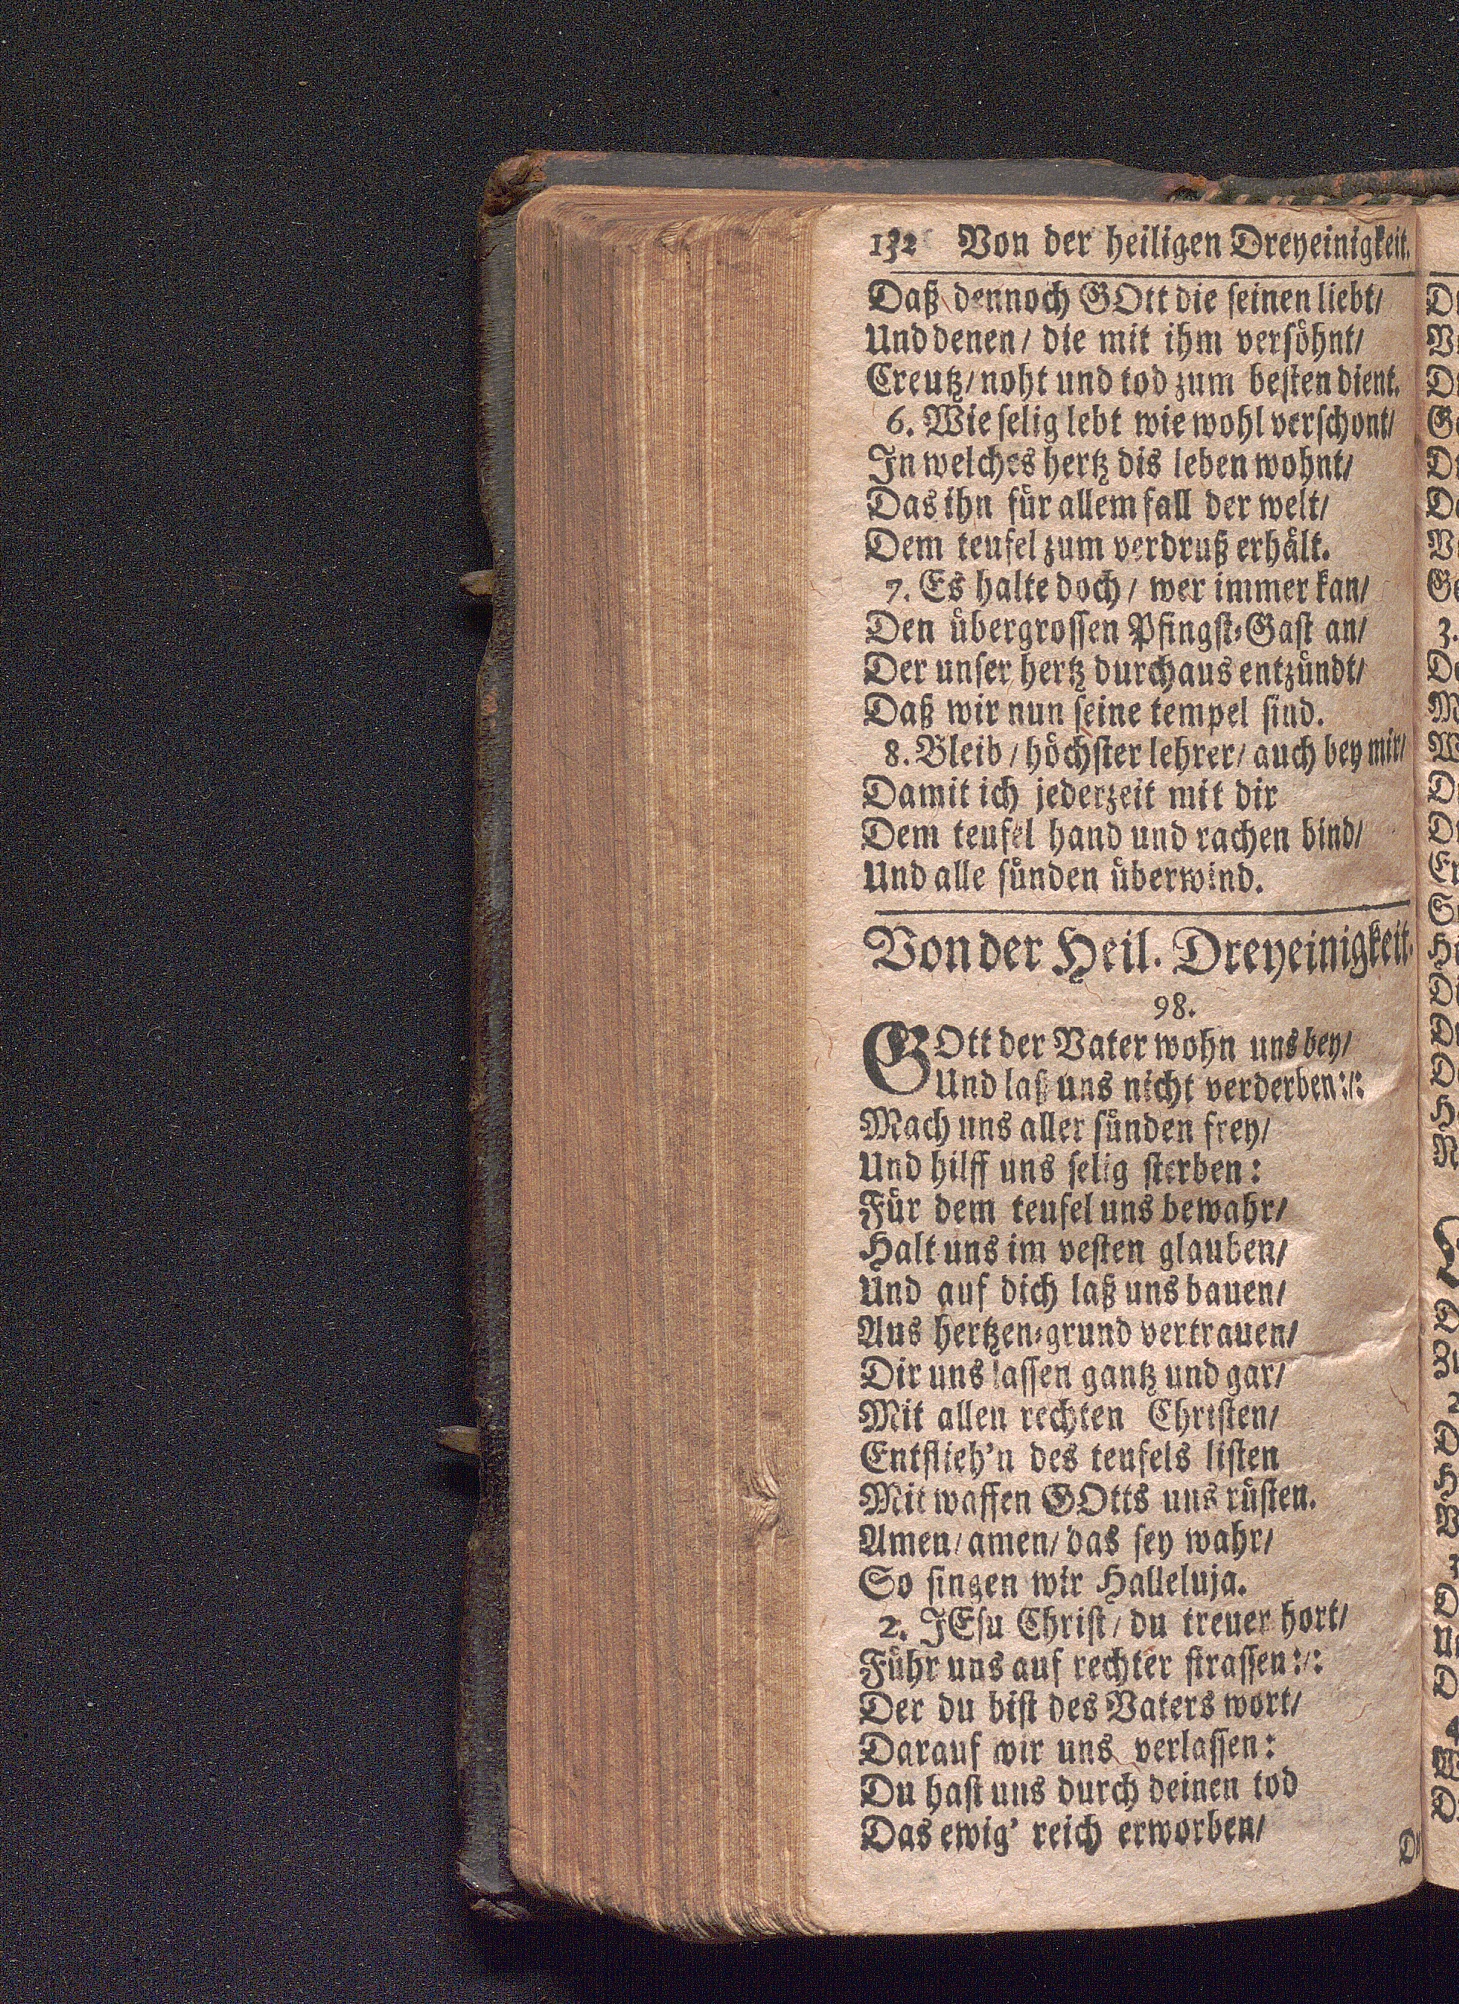 132 Von der heiligen Dreyeinigkeit.
Daß dennoch GOtt die seinen liebt/
Und denen/ die mit ihm versöhnt/
Creutz/ noht und tod zum besten dient.
6. Wie selig lebt wie wohl verschont/
In welches hertz dis leben wohnt/
Das ihn für allem fall der welt/
Dem teufel zum verdruß erhält.
7. Es halte doch/ wer immer kan/
Den übergrossen Pfingst-Gast an/
Der unser hertz durchaus entzündt/
Daß wir nun seine tempel sind.
8. Bleib/ höchster lehrer/ auch bey mir/
Damit ich jederzeit mit dir
Dem teufel hand und rachen bind/
Und alle sünden überwind.
Von der Heil. Dreyeinigkeit.
98.
GOtt der Vater wohn uns bey/
Und laß uns nicht verderben:/:
Mach uns aller sünden frey/
Und hilff uns selig sterben:
Für dem teufel uns bewahr/
Halt uns im vesten glauben/
Und auf dich laß uns bauen/
Aus hertzen-grund vertrauen/
Dir uns lassen gantz und gar/
Mit allen rechten Christen/
Entflieh'n des teufels listen
Mit waffen GOtts uns rüsten.
Amen/ amen/ das sey wahr/
So singen wir Halleluja.
2. JEsu Christ/ du treuer hort/
Führ uns auf rechter strassen:/:
Der du bist des Vaters wort/
Darauf wir uns verlassen:
Du hast uns durch deinen tod
Das ewig' reich erworben/